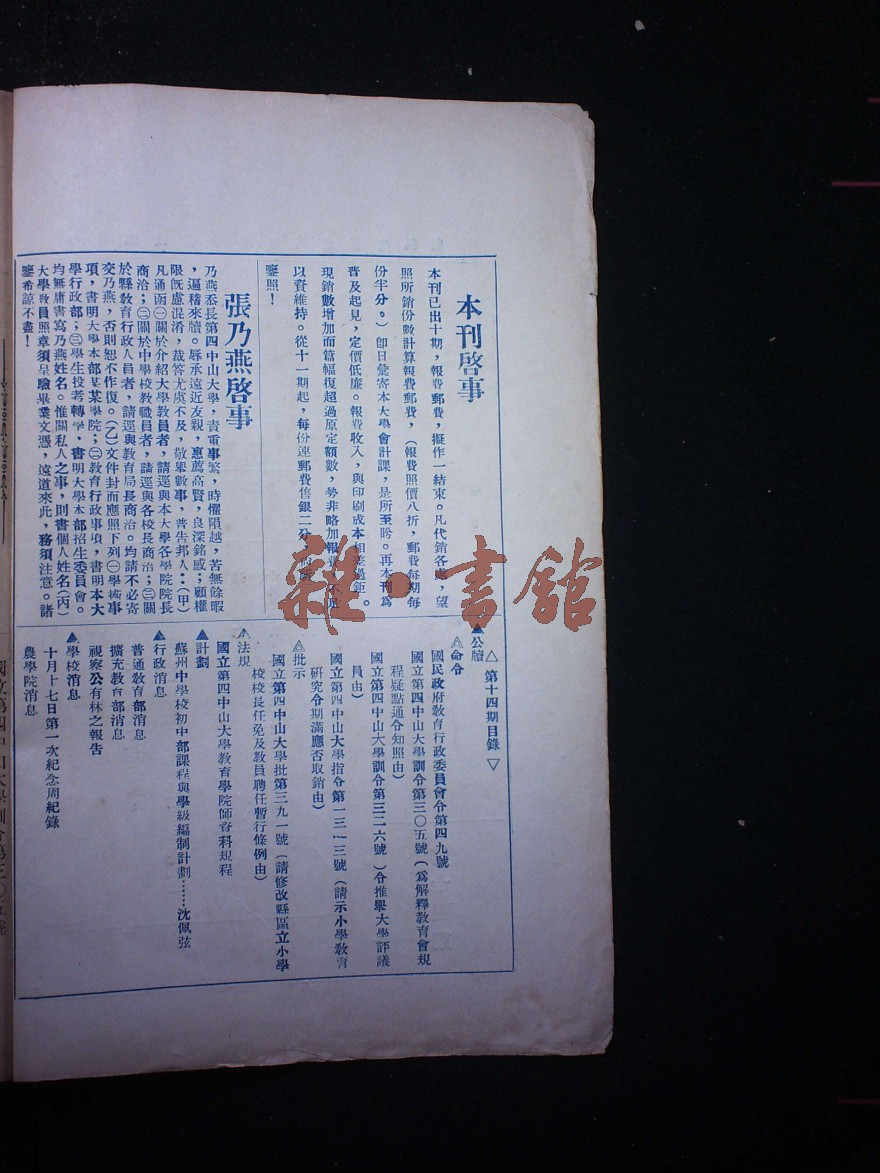 本刊啓事
本刊已出十期，報費郵費，擬作一結束。凡代銷各處，望
照所銷份數計算報費郵費，（報費照價八折，郵費每期每
份半分。）卽日彙寄本大學會計課，是所至盼。再本刊爲
普及起見，定價低廉。報費收入，與印刷成本相差過鉅。
現銷數增加而篇幅復超過原定額數，勢非略加報費，不足
以資維持。從十一期起，每份連郵費售銀二分，
鑒照！
張乃燕啓事
乃燕忝長第四中山大學，責重事繁，時懼隕越，苦無餘暇
，逼稽來牘。辱承遠近友親，惠薦高賢，良深銘感；顧權
限旣慮混淆，裁答尤虞不及，敬畧數事，普告邦人：（甲）
凡通函㊀關於介紹大學敎員者，請逕與本大學各學院院長
商洽；㊁關於中學校敎職員者，請逕與各校長商洽；㊂關
於縣敎育行政人員者，請逕與敎育局長商洽。均請不必寄
交乃燕，否則恕不作復。（乙）文件封面應照下列㊀學術事
項，書明大學本部某某學院；㊁敎育行政事項，書明本大
學行政部；㊂學生投考轉學，書明大學本部招生委員會。
均無庸書寫乃燕姓名。惟關私人之事，則書個人姓名（丙）
大學敎員照章須呈驗畢業文憑，遠道來此，務須注意。諸
鑒希諒不盡！
△第十四期目錄▽
▲公牘
△命令
國民政府敎育行政委員會令第四九號
國立第四中山大學訓令第三〇五號（爲解釋敎育會規
程疑點通令知照由）
國立第四中山大學訓令第三二六號）令推舉大學評議
員由）
國立第四中山大學指令第一三一三號（請示小學敎育
硏究令期滿應否取銷由）
△批示
國立第四中山大學批第三九一號（請修改縣區立小學
校校長任免及敎員聘任暫行條例由）
▲法規
國立第四中山大學敎育學院師眘科規程
▲計劃
蘇州中學校初中部課程與學級編制計劃……沈佩弦
▲行政消息
普通敎育部消息
擴充敎育部消息
視察公有林之報告
▲學校消息
十月十七日第一次紀念周紀錄
農學院消息
國立第四中山大學訓令第三〇五號
雜·書館